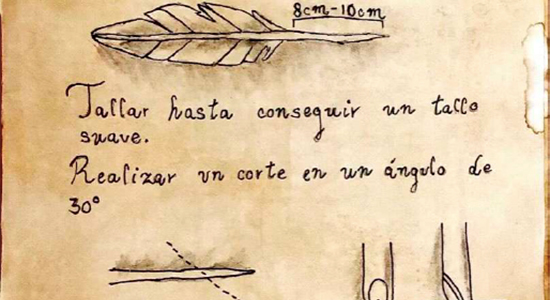 8cm-10cm
Tallar hasta conseguir un tallo
suave.
Realizar un corte en un ángulo de
30°